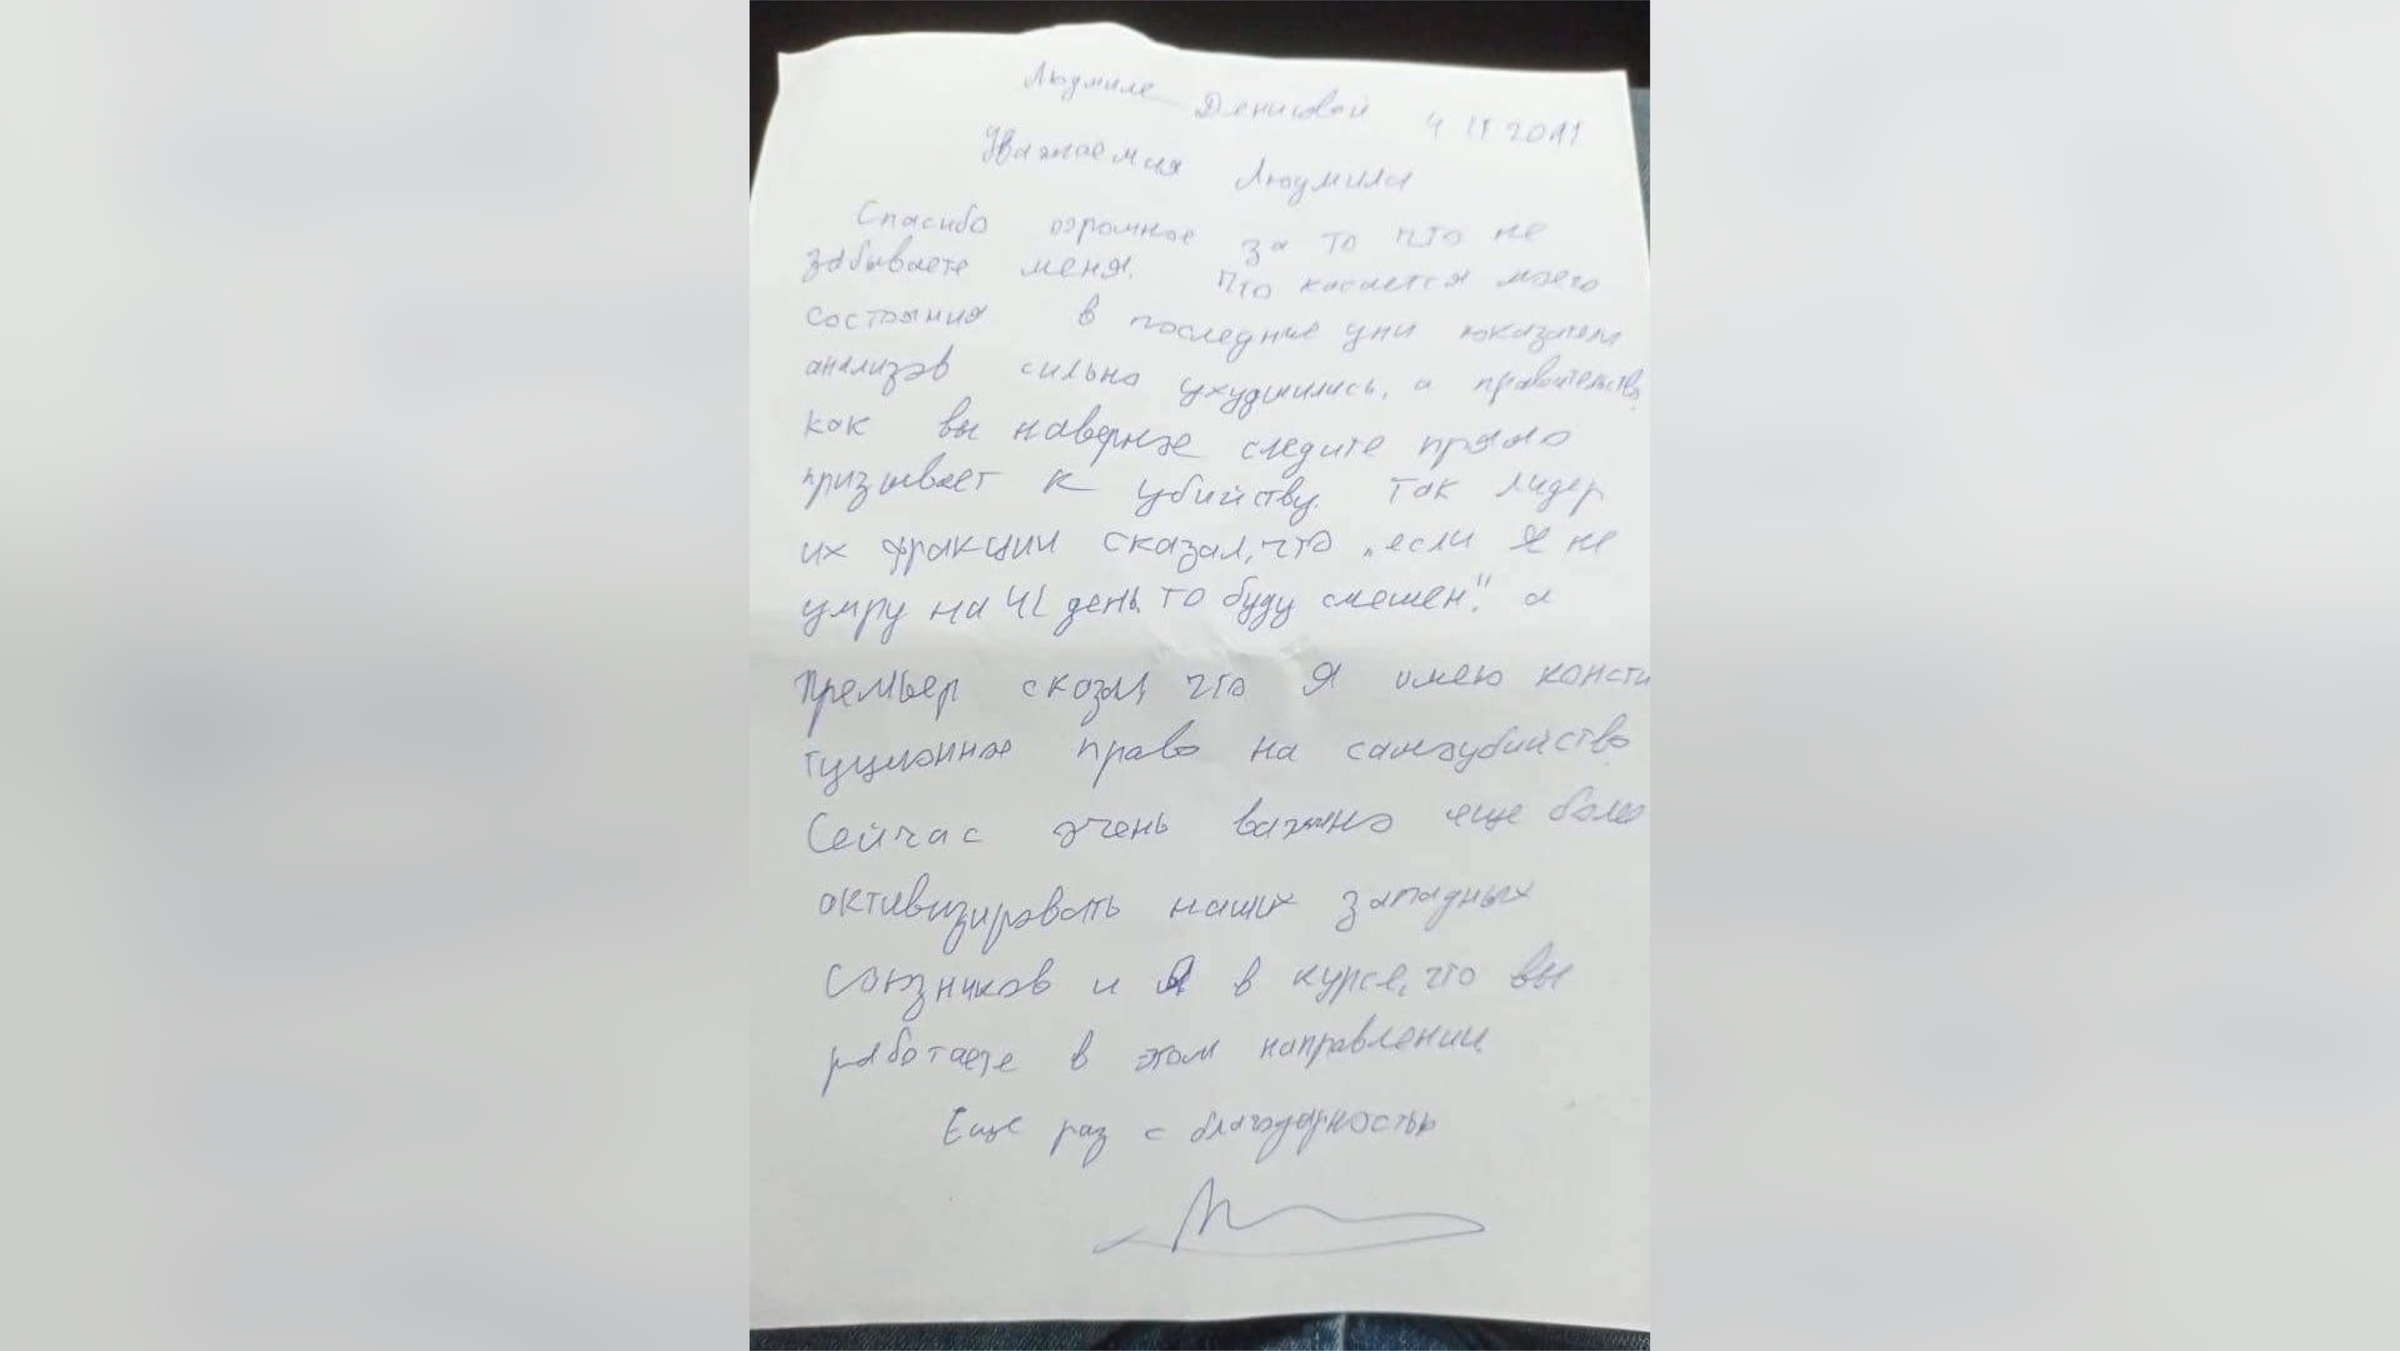 Людмиле Денисовой 4 11 2011
Уважаемая Людмила
Спасибо огромное за то что не
забываете меня. Что касается моего
состояния в последние дни показатели
анализов сильно ухудшились, а правительство
как вы наверное следите прямо
призывает к убийству. Так лидер
их фракции сказал, что „если я не
умру на 42 день то буду смешен". а
Премьер сказал, что Я имею консти
туционное право на самоубийство
Сейчас очень важно еще более
активизировать наших западных
союзников и я в курсе, что вы
работаете в этом направлении.
Еще раз с благодарностью